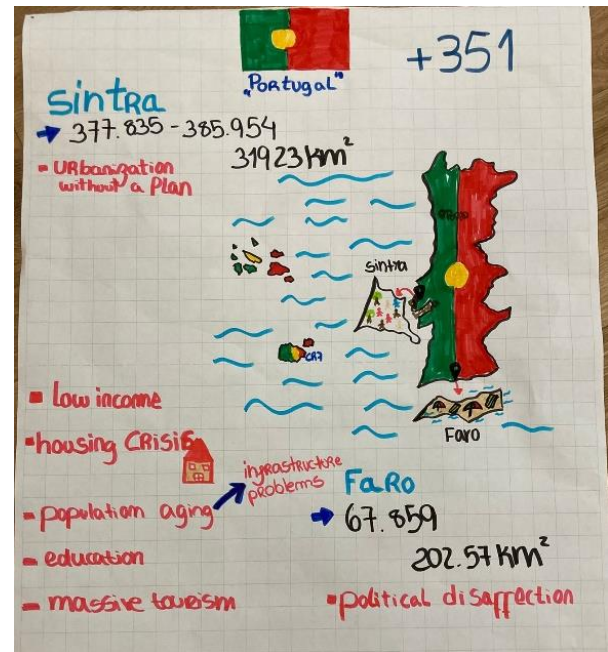 „Portugal"
+351
Sintra
377.835 - 385.954
31923 km²
- URbanization
without a Plan
Sintra
CR7
Faro
- low income
- housing CRisis
- population aging
infrastructure
problems
- education
- massive tourism
FaRo
67.859
202.57 km²
- political disaffection